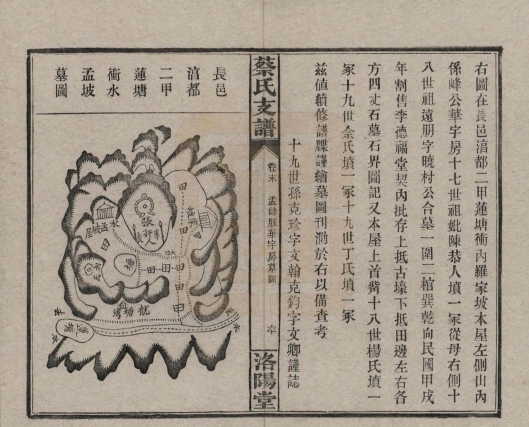 右圖在長邑涫都二甲蓮塘衝內羅家坡本屋左側山內
係峰公華字房十七世祖妣陳恭人墳一冢從母右側十
八世祖遠朋字曉村公合墓一圍二棺巽乾向民國甲戌
年割售李德福堂契內批存上抵古壕下抵田邊左右各
方四丈石墓石界圖記又本屋上首葬十八世楊氏墳一
冢十九世余氏墳一冢十九世丁氏墳一冢
茲值續修譜牒謹繪墓圖刊泐於右以備查考
十九世孫克珍字文翰克鈞字文卿謹誌
蔡氏支譜
卷末
孟峰脈華字房墓圖
六十
洛陽堂
長邑
涫都
二甲
蓮塘
衝水
孟坡
墓圖